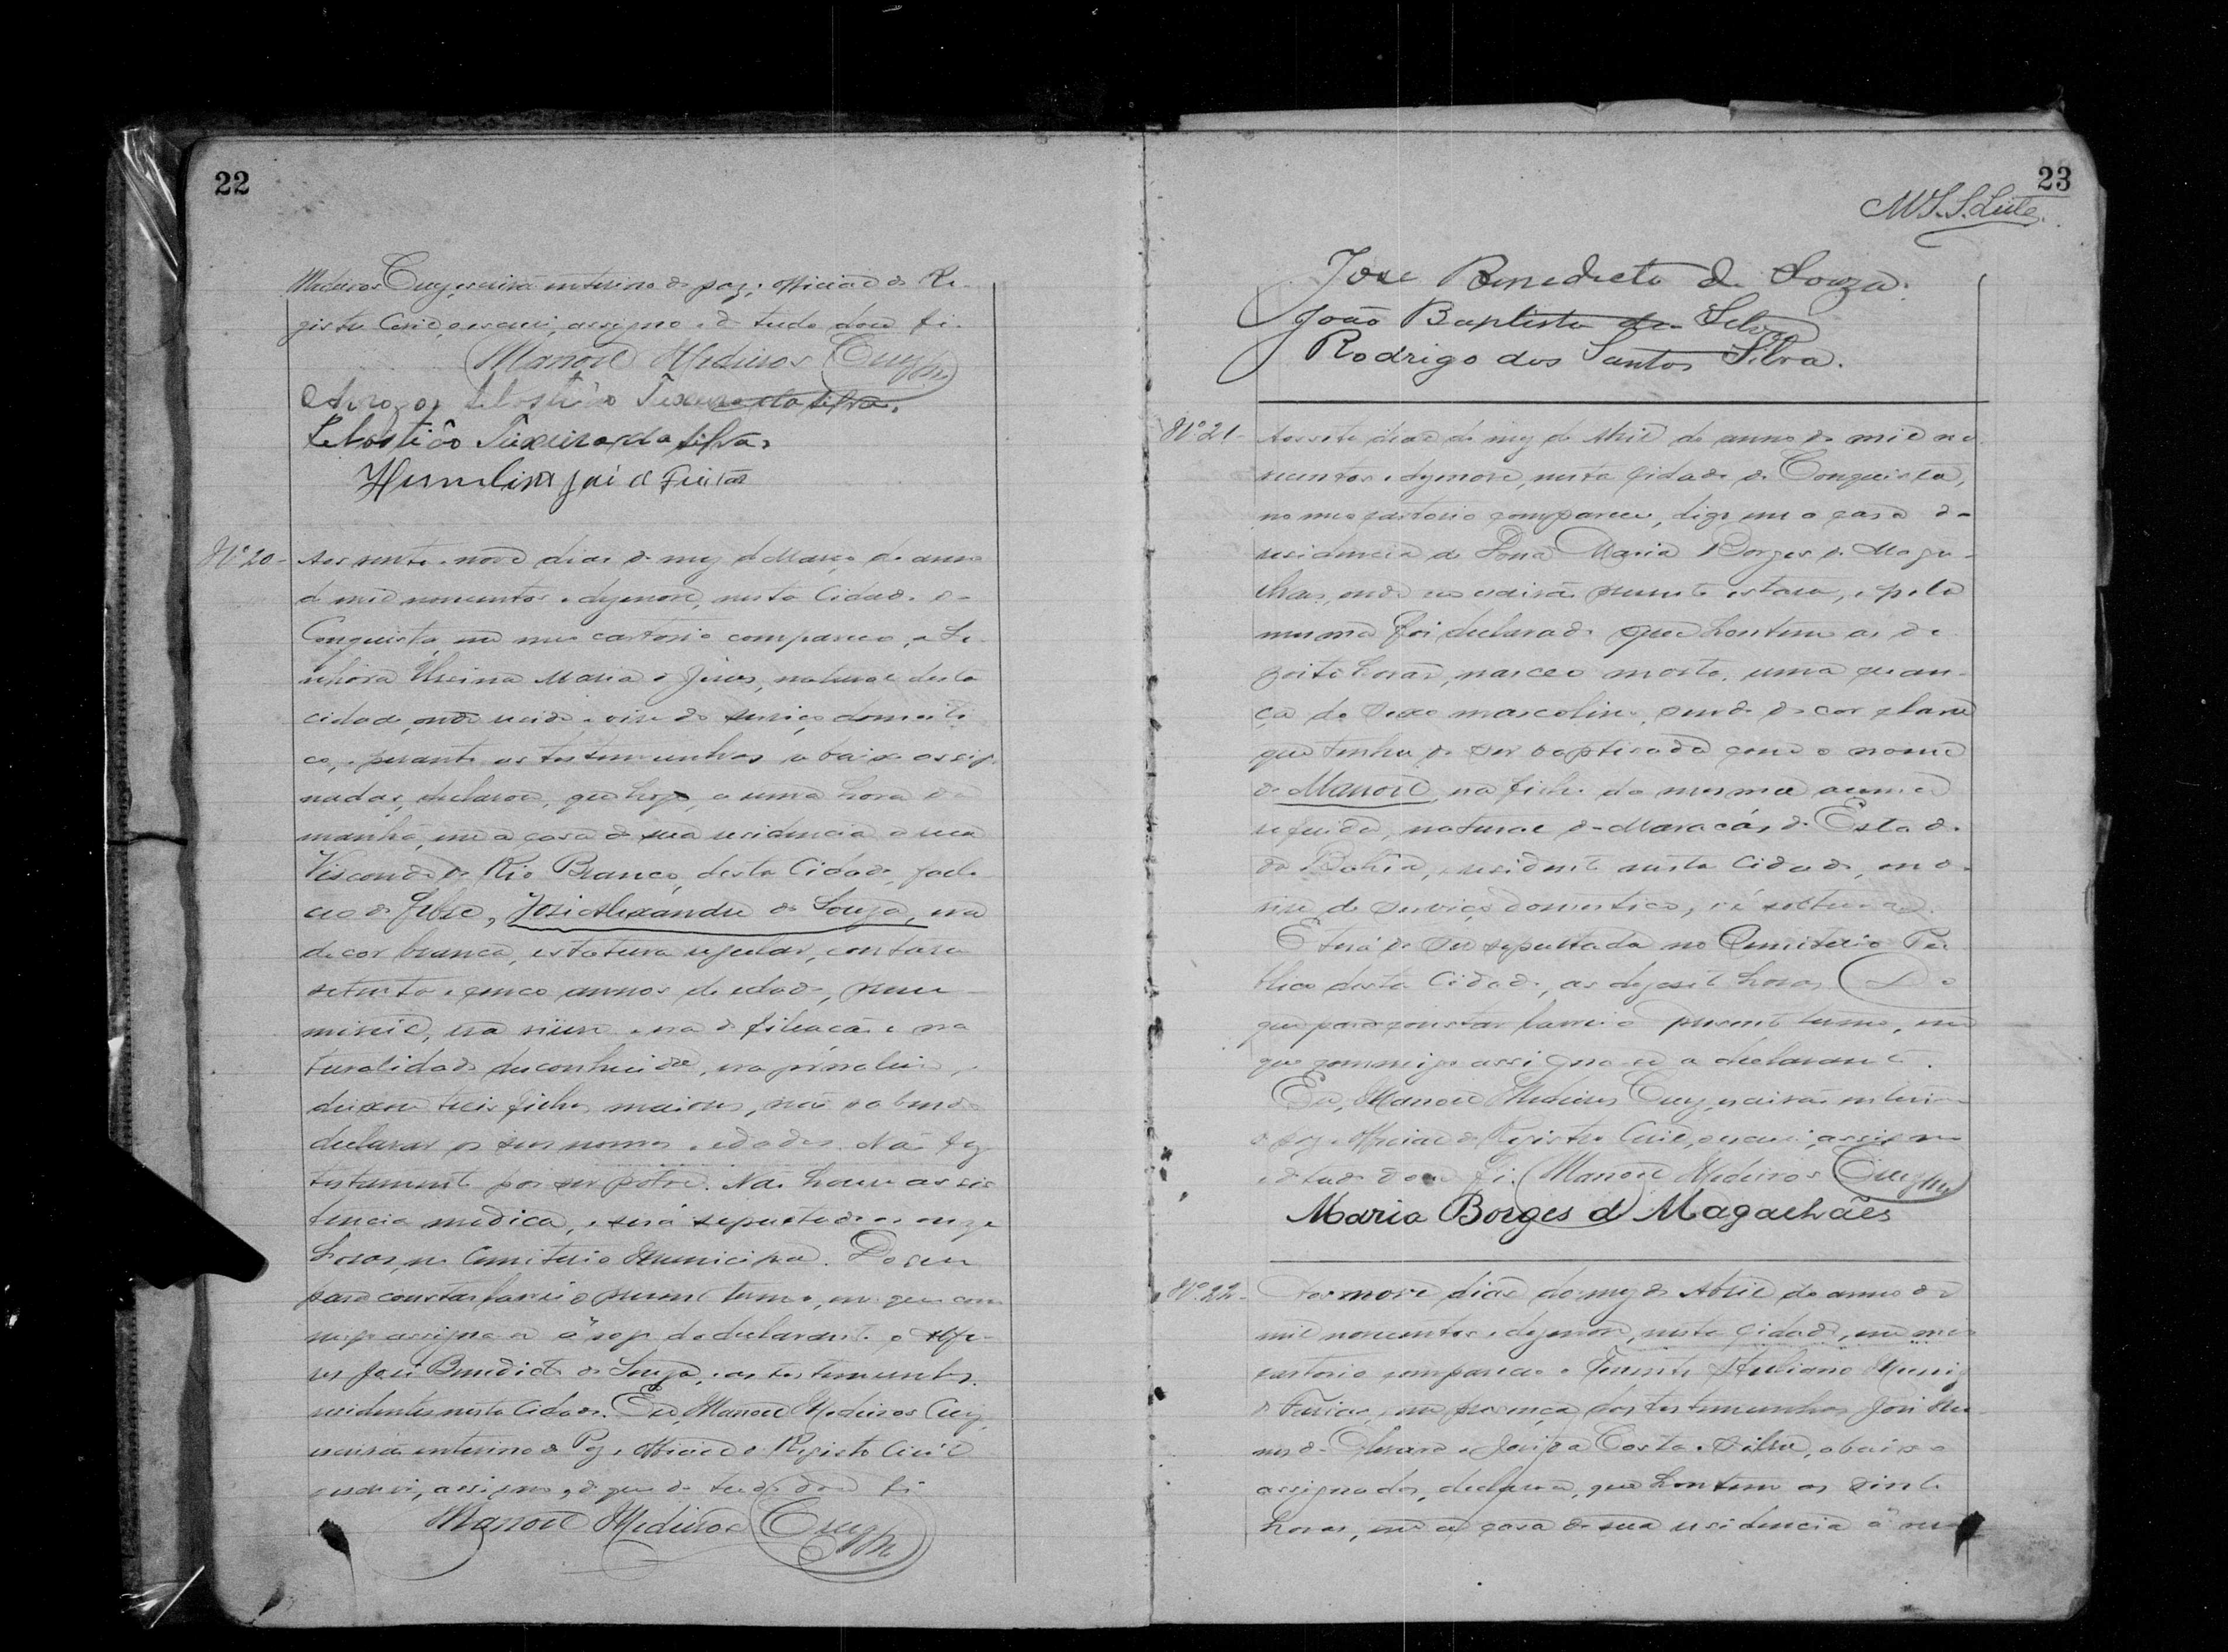 22
Medeiros Cruz, escrivã interino de paz, e official do Re-
gistro Civil, o escrevi, assigno e de tudo dou fé.
Manoel Medeiros Cruz
A rogo, Sebastião Teixeira da Silva.
Sebastião Teixeira da Silva
José de Freitas
Nº 20 - Aos vinte e nove dias do mez de Março do anno
de mil novecentos e dezenove, nesta Cidade de
Conquista, em meu cartorio compareceo, a Se-
nhora Maria de Jesus, natural desta
cidade, onde reside e vive do serviço domesti-
co, e perante as testemunhas abaixo assig-
nadas, declarou, que hoje, a uma hora da
manhã, em a casa de sua residencia a rua
Visconde do Rio Branco, desta Cidade, falle-
ceo de febre, José Alexandre de Souza, era
de cor branca, estatura regular, contava
setenta e cinco annos de edade, presu-
mivel, era viuvo e era de filiação e na-
turalidade desconhecida, era
deixou treis filhos maiores, não sabendo
declarar os seus nomes e edades. Não fez
testamento por ser pobre. Não houve assis-
tencia medica, e será sepultado as onze
horas, no Cemiterio Municipal. Do que
para constar lavrei o presente termo, em que com-
migo assigna-se a rogo da declarante o Alfe-
res José Benedicto de Souza, e as testemunhas
residentes nesta Cidade. Eu, Manoel Medeiros Cruz,
escrivão interino de Paz e Official do Registo Civil
escrevi, assigno, e de que de tudo dou fé.
Manoel Medeiros Cruz
23
M S. S. Leite
Jose Benedicto de Souza.
João Baptista da Silva
Rodrigo dos Santos Silva.
Nº 21 - Aos sete dias do mez de Abril do anno de mil no-
vecentos e dezenove, nesta Cidade de Conquista,
no meu cartorio compareceu, digo em a casa de
residencia de Dona Maria Borges de Maga-
lhães, onde eu escrivão presente estava, e pela
mesma foi declarado que hontem as de-
zoito horas, nasceo morta, uma crean-
ça do sexo mascolino, sendo de cor
que tenha de ser baptisada com o nome
de Manoel,
natural de Maracás do Estado
da Bahia, residente nesta Cidade, onde
vive do serviço domestico, e é solteira.
E terá de ser sepultada no Cemiterio Pu-
blico desta Cidade, as dezesete horas. Do
que para constar lavrei o presente termo, em
que commigo assigna-se a declarante.
Eu, Manoel Medeiros Cruz, escrivão interino
de paz e Official do Registro Civil, o escrevi, assigno
e de tudo dou fé. Manoel Medeiros Cruz
Maria Borges d Magalhães
Nº 22 - Aos nove dias do mez de Abril do anno de
mil novecentos e dezenove, nesta Cidade, em meu
cartorio compareceo o Tenente Muniz
de Farias, em presença das testemunhas José
e Costa e Silva, abaixo
assignados, declarou, que hontem as vinte
horas, em a casa de sua residencia á rua